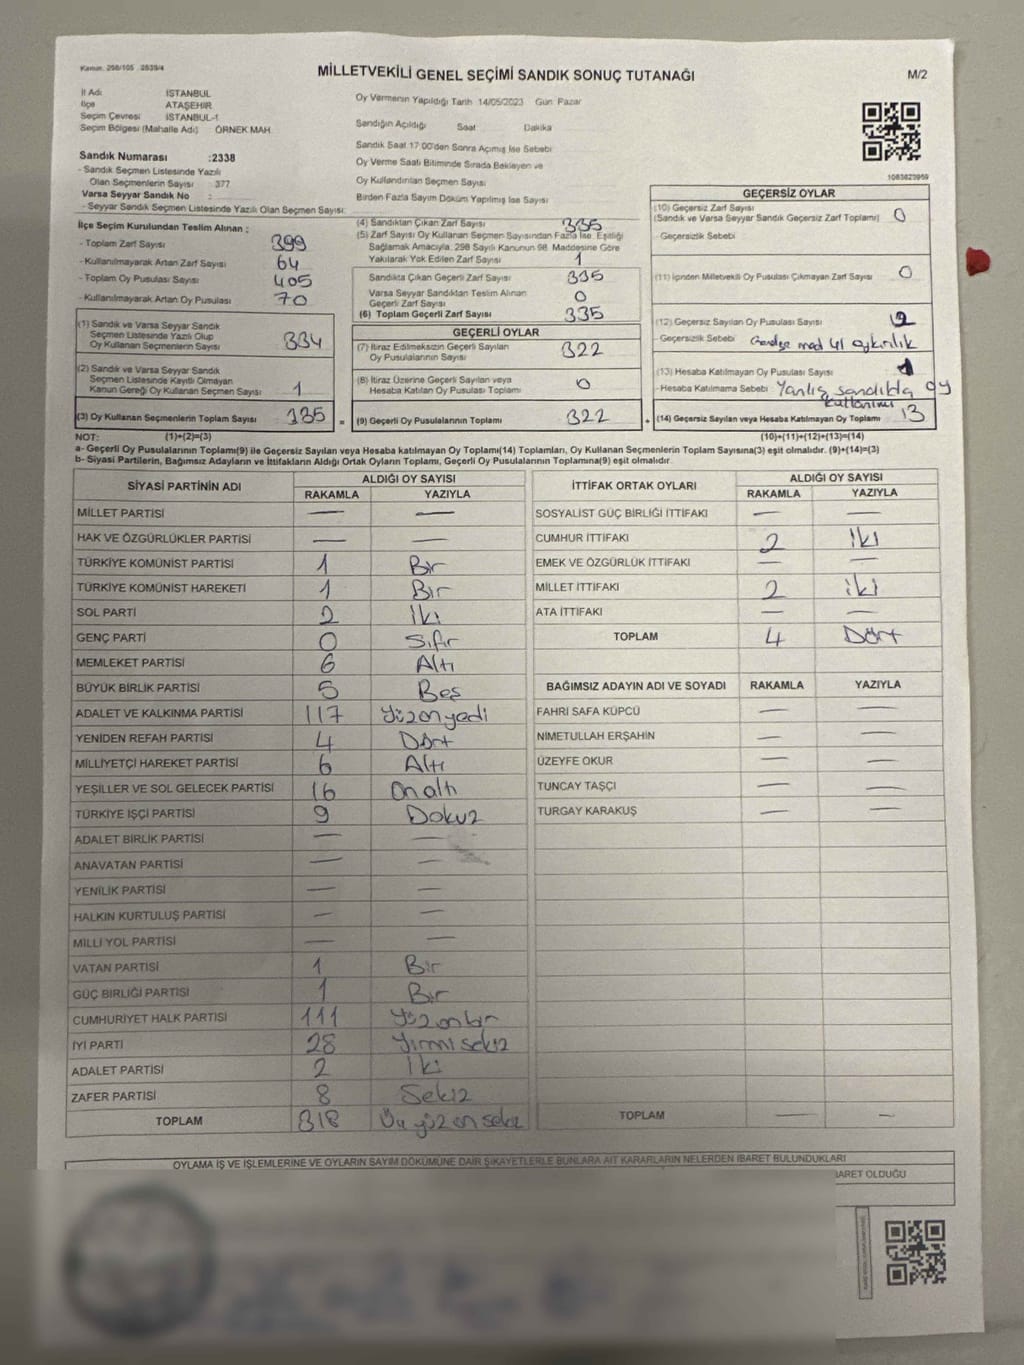 Kanun: 298/105 . 2839/4
MİLLETVEKİLİ GENEL SEÇİMİ SANDIK SONUÇ TUTANAĞI
M/2
İl Adı İSTANBUL
İlçe ATAŞEHİR
Seçim Çevresi İSTANBUL-1
Seçim Bölgesi (Mahalle Adı) ÖRNEK MAH.
Sandık Numarası :2338
- Sandık Seçmen Listesinde Yazılı
Olan Seçmenlerin Sayısı : 377
Varsa Seyyar Sandık No :
- Seyyar Sandık Seçmen Listesinde Yazılı Olan Seçmen Sayısı:
Oy Vermenin Yapıldığı Tarih 14/05/2023 Gün Pazar
Sandığın Açıldığı Saat Dakika
Sandık Saat 17:00'den Sonra Açılmış İse Sebebi
Oy Verme Saati Bitiminde Sırada Bekleyen ve
Oy Kullandırılan Seçmen Sayısı
Birden Fazla Sayım Döküm Yapılmış İse Sayısı
1083823959
İlçe Seçim Kurulundan Teslim Alınan :
- Toplam Zarf Sayısı 399
- Kullanılmayarak Artan Zarf Sayısı 64
- Toplam Oy Pusulası Sayısı 405
- Kullanılmayarak Artan Oy Pusulası 70
(1) Sandık ve Varsa Seyyar Sandık
Seçmen Listesinde Yazılı Olup
Oy Kullanan Seçmenlerin Sayısı 334
(2) Sandık ve Varsa Seyyar Sandık
Seçmen Listesinde Kayıtlı Olmayan
Kanun Gereği Oy Kullanan Seçmen Sayısı 1
(3) Oy Kullanan Seçmenlerin Toplam Sayısı 335 =
(4) Sandıktan Çıkan Zarf Sayısı 335
(5) Zarf Sayısı Oy Kullanan Seçmen Sayısından Fazla İse, Eşitliği
Sağlamak Amacıyla, 298 Sayılı Kanunun 98. Maddesine Göre
Yakılarak Yok Edilen Zarf Sayısı 1
Sandıkta Çıkan Geçerli Zarf Sayısı 335
Varsa Seyyar Sandıktan Teslim Alınan
Geçerli Zarf Sayısı 0
(6) Toplam Geçerli Zarf Sayısı 335
GEÇERLİ OYLAR
(7) İtiraz Edilmeksizin Geçerli Sayılan
Oy Pusulalarının Sayısı 322
(8) İtiraz Üzerine Geçerli Sayılan veya
Hesaba Katılan Oy Pusulası Toplamı 0
(9) Geçerli Oy Pusulalarının Toplamı 322 +
GEÇERSİZ OYLAR
(10) Geçersiz Zarf Sayısı
(Sandık ve Varsa Seyyar Sandık Geçersiz Zarf Toplamı) 0
- Geçersizlik Sebebi
(11) İçinden Milletvekili Oy Pusulası Çıkmayan Zarf Sayısı 0
(12) Geçersiz Sayılan Oy Pusulası Sayısı 12
- Geçersizlik Sebebi Genelge mad 41 aykırılık
(13) Hesaba Katılmayan Oy Pusulası Sayısı 1
- Hesaba Katılmama Sebebi Yanlış sandıkta oy
kullanımı
(14) Geçersiz Sayılan veya Hesaba Katılmayan Oy Toplamı 13
NOT: (1)+(2)=(3) (10)+(11)+(12)+(13)=(14)
a- Geçerli Oy Pusulalarının Toplamı(9) ile Geçersiz Sayılan veya Hesaba katılmayan Oy Toplamı(14) Toplamları, Oy Kullanan Seçmenlerin Toplam Sayısına(3) eşit olmalıdır. (9)+(14)=(3)
b- Siyasi Partilerin, Bağımsız Adayların ve İttifakların Aldığı Ortak Oyların Toplamı, Geçerli Oy Pusulalarının Toplamına(9) eşit olmalıdır.
SİYASİ PARTİNİN ADI ALDIĞI OY SAYISI
RAKAMLA YAZIYLA
MİLLET PARTİSİ — —
HAK VE ÖZGÜRLÜKLER PARTİSİ — —
TÜRKİYE KOMÜNİST PARTİSİ 1 Bir
TÜRKİYE KOMÜNİST HAREKETİ 1 Bir
SOL PARTİ 2 İki
GENÇ PARTİ 0 Sıfır
MEMLEKET PARTİSİ 6 Altı
BÜYÜK BİRLİK PARTİSİ 5 Beş
ADALET VE KALKINMA PARTİSİ 117 Yüzonyedi
YENİDEN REFAH PARTİSİ 4 Dört
MİLLİYETÇİ HAREKET PARTİSİ 6 Altı
YEŞİLLER VE SOL GELECEK PARTİSİ 16 Onaltı
TÜRKİYE İŞÇİ PARTİSİ 9 Dokuz
ADALET BİRLİK PARTİSİ — —
ANAVATAN PARTİSİ — —
YENİLİK PARTİSİ — —
HALKIN KURTULUŞ PARTİSİ — —
MİLLİ YOL PARTİSİ — —
VATAN PARTİSİ 1 Bir
GÜÇ BİRLİĞİ PARTİSİ 1 Bir
CUMHURİYET HALK PARTİSİ 111 Yüzonbir
İYİ PARTİ 28 Yirmi sekiz
ADALET PARTİSİ 2 İki
ZAFER PARTİSİ 8 Sekiz
TOPLAM 318 Üç yüz on sekiz
İTTİFAK ORTAK OYLARI ALDIĞI OY SAYISI
RAKAMLA YAZIYLA
SOSYALİST GÜÇ BİRLİĞİ İTTİFAKI — —
CUMHUR İTTİFAKI 2 İki
EMEK VE ÖZGÜRLÜK İTTİFAKI — —
MİLLET İTTİFAKI 2 iki
ATA İTTİFAKI — —
TOPLAM 4 Dört
BAĞIMSIZ ADAYIN ADI VE SOYADI RAKAMLA YAZIYLA
FAHRİ SAFA KÜPCÜ — —
NİMETULLAH ERŞAHİN — —
ÜZEYFE OKUR — —
TUNCAY TAŞÇI — —
TURGAY KARAKUŞ — —
TOPLAM — —
OYLAMA İŞ VE İŞLEMLERİNE VE OYLARIN SAYIM DÖKÜMÜNE DAİR ŞİKAYETLERLE BUNLARA AİT KARARLARIN NELERDEN İBARET BULUNDUKLARI
BARET OLDUĞU